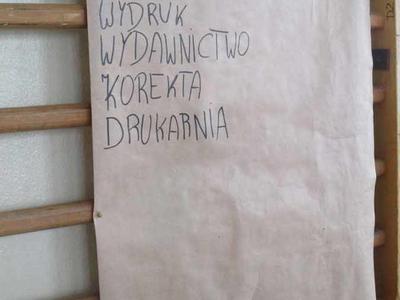 WYDRUK
WYDAWNICTWO
KOREKTA
DRUKARNIA
D2